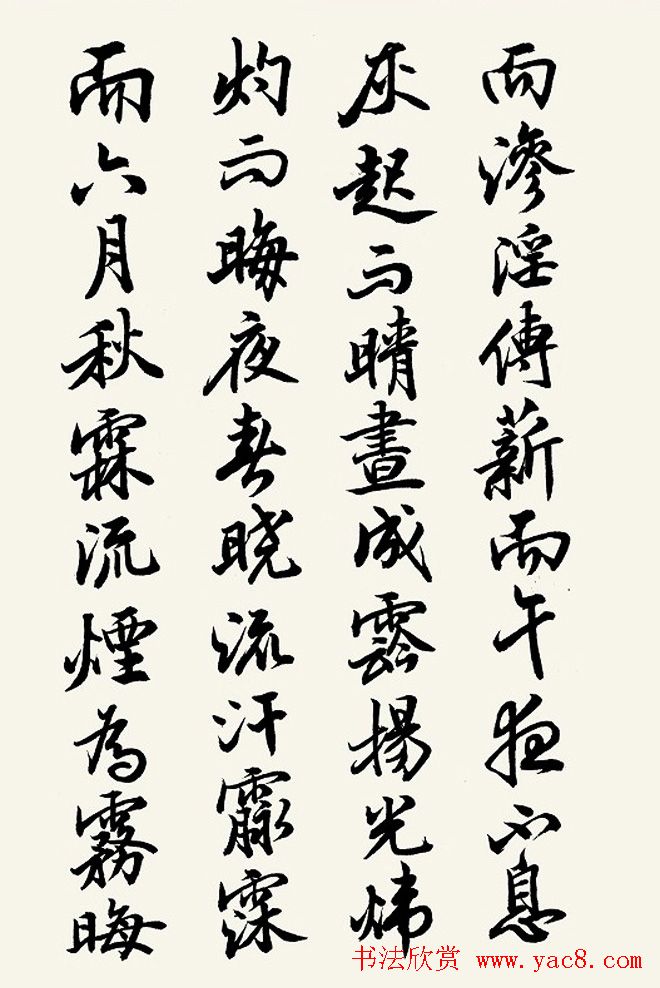 而滲淫傳薪而午夜不息
灰起而晴晝成雲揚光煒
灼而晦夜春晓流汗霢霂
而六月秋霖流煙為霧晦
书法欣赏 www.yac8.com